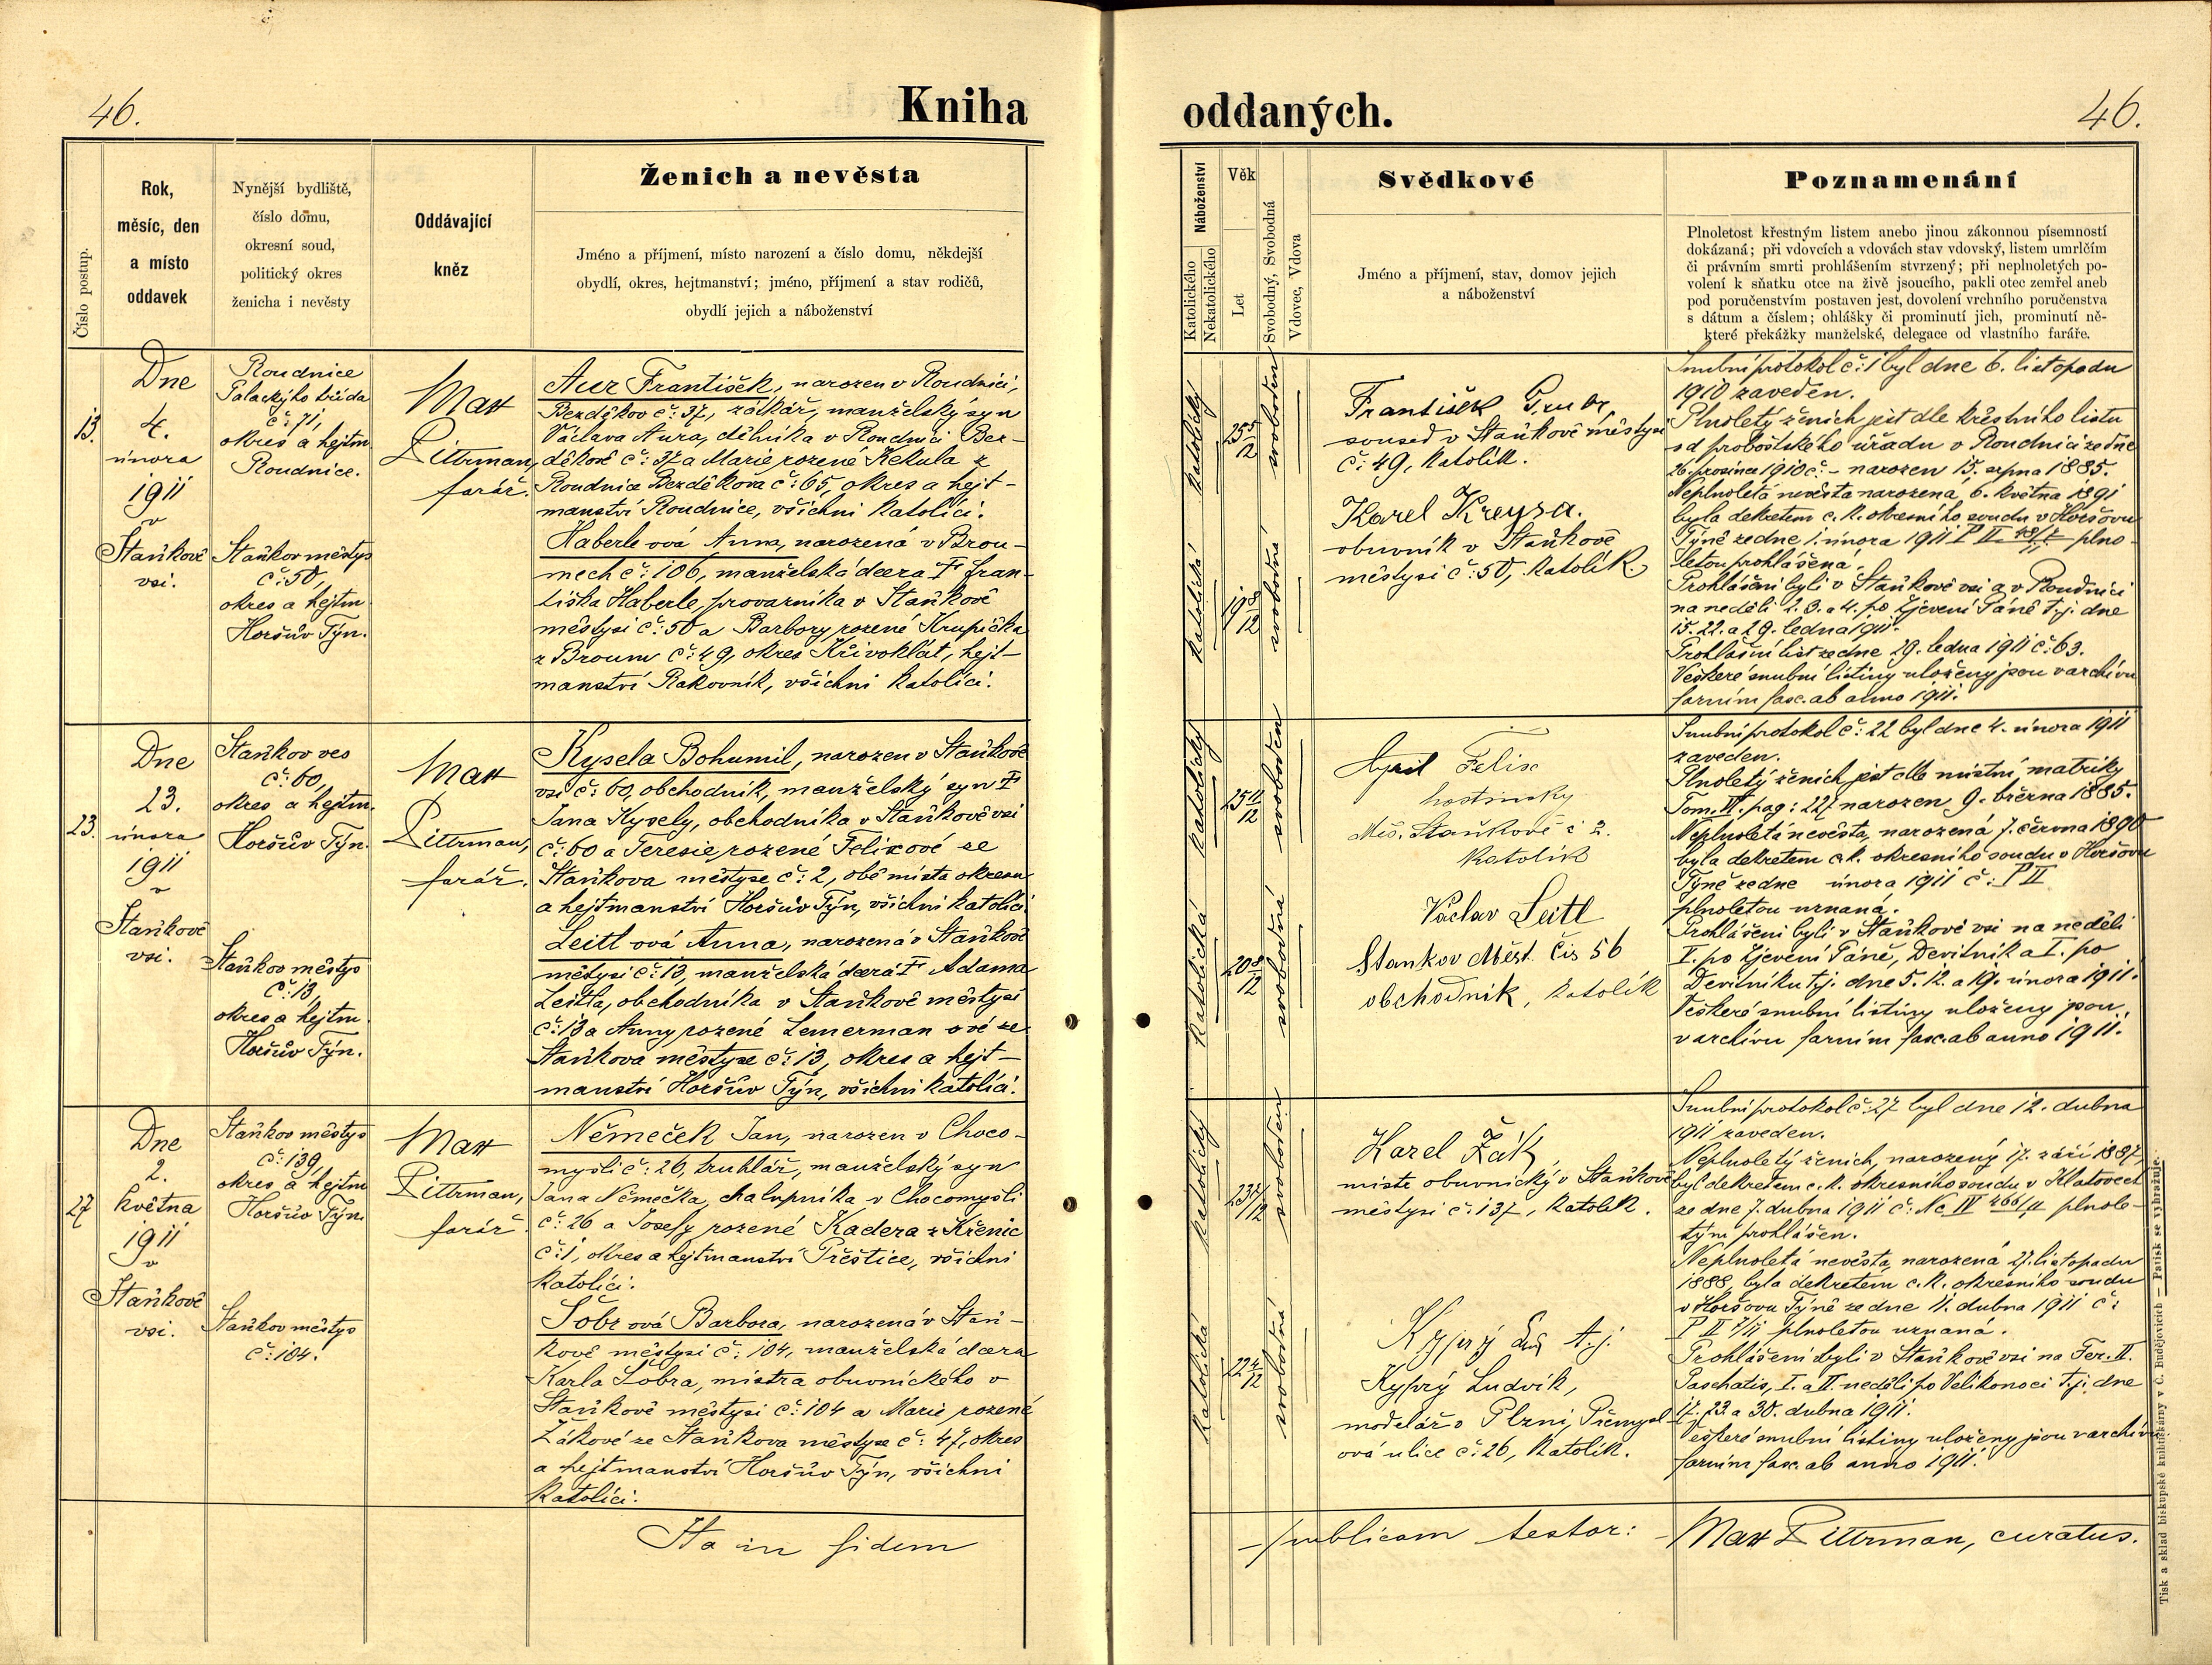 46.
Kniha
oddaných.
46.
Číslo postup.
Rok,
měsíc, den
a místo
oddavek
Nynější bydliště,
číslo domu,
okresní soud,
politický okres
ženicha i nevěsty
Oddávající
kněz
Ženich a nevěsta
Jméno a příjmení, místo narození a číslo domu, někdejší
obydlí, okres, hejtmanství; jméno, příjmení a stav rodičů,
obydlí jejich a náboženství
Náboženství
Katolického
Nekatolického
Věk
Let
Svobodný, Svobodná
Vdovec, Vdova
Svědkové
Jméno a příjmení, stav, domov jejich
a náboženství
Poznamenání
Plnoletost křestným listem anebo jinou zákonnou písemností
dokázaná; při vdovcích a vdovách stav vdovský, listem umrlčím
či právním smrti prohlášením stvrzený; při neplnoletých po-
volení k sňatku otce na živě jsoucího, pakli otec zemřel aneb
pod poručenstvím postaven jest, dovolení vrchního poručenstva
s dátum a číslem; ohlášky či prominutí jich, prominutí ně-
které překážky manželské, delegace od vlastního faráře.
13.
Dne
4.
února
1911
v
Staňkově
vsi.
Roudnice
Palackýho třída
č: 71,
okres a hejtm.
Roudnice.
Staňkov městys
č: 50,
okres a hejtm
Horšův Týn.
Max
Pittrman,
farář.
Aur František, narozen v Roudnici,
Bezděkov č: 37, zálkář, manželský syn
Václava Aura, dělníka v Roudnici Bez-
děkově č: 37 a Marie rozené Kekula z
Roudnice Bezděkova č: 65, okres a hejt-
manství Roudnice, všichni katolíci.
Haberle ová Anna, narozená v Brou-
mech č: 106, manželská dcera † Fran-
tiška Haberle, provazníka v Staňkově
městysi č: 50 a Barbory rozené Krupička
z Broum č: 49, okres Křivoklát, hejt-
manství Rakovník, všichni katolíci.
katolický
25 5/12
svoboden
katolická
19 8/12
svobodná
František Gruber,
soused v Staňkově městysi
č: 49, katolík.
Karel Kreysa.
obuvník v Staňkově
městysi č: 50, katolík
Snubní protokol č: 1 byl dne 6. listopadu
1910 zaveden.
Plnoletý ženich jest dle křestního listu
od proboštského úřadu v Roudnici ze dne
26. prosince 1910 č: - narozen 15. srpna 1885.
Neplnoletá nevěsta narozená 6. května 1891
byla dekretem c. k. okresního soudu v Horšovu
Týně ze dne 1. února 1911 P II plno-
letou prohlášena.
Prohlášeni byli v Staňkově vsi a v Roudnici
na neděli 2. 3. a 4. po Zjevení Páně t. j. dne
15. 22. a 29. ledna 1911.
Prohlašní list ze dne 29. ledna 1911 č: 63.
Veškeré snubní listiny uloženy jsou v archivu
farním fasc. ab anno 1911.
23.
Dne
23.
února
1911
v
Staňkově
vsi.
Staňkov ves
č: 60,
okres a hejtm.
Horšův Týn.
Staňkov městys
č: 13,
okres a hejtm
Horšův Týn.
Max
Pittrman,
farář.
Kysela Bohumil, narozen v Staňkově
vsi č: 60, obchodník, manželský syn †
Jana Kysely, obchodníka v Staňkově vsi
č: 60 a Teresie, rozené Felixové ze
Staňkova městyse č: 2, obě místa okresu
a hejtmanství Horšův Týn, všichni katolíci
Leitl ová Anna, narozená v Staňkově
městysi č: 13, manželská dcera † Adama
Leitla, obchodníka v Staňkově městysi
č: 13 a Anny rozené Lemerman ové ze
Staňkova městyse č: 13, okres a hejt-
manství Horšův Týn, všichni katolíci.
katolický
25 11/12
svoboden
katolická
20 8/12
svobodná
Cyril Felix
hostinsky
Měs. Staňkově č 2.
katolík
Václav Leitl
Stankov Měst. Čís 56
obchodník, katolík
Snubní protokol č: 22 byl dne 4. února 1911
zaveden.
Plnoletý ženich jest dle místní matriky
Tom. IV. pag: 227 narozen 9. března 1885.
Neplnoletá nevěsta, narozená 7. června 1890
byla dekretem c. k. okresního soudu v Horšovu
Týně ze dne února 1911 č: P II
plnoletou uznaná.
Prohlášeni byli v Staňkově vsi na neděli
V. po Zjevení Páně, Devítník a I. po
Devítníku t. j. dne 5. 12. a 19. února 1911.
Veškeré snubní listiny uloženy jsou
v archivu farním fasc. ab anno 1911.
27
Dne
2.
května
1911
v
Staňkově
vsi.
Staňkov městys
č: 139,
okres a hejtm
Horšův Týn.
Staňkov městys
č: 104.
Max
Pittrman,
farář.
Němeček Jan, narozen v Choco-
myšli č: 26, truhlář, manželský syn
Jana Němečka, chalupníka v Chocomyšli
č: 26 a Josefy rozené Kadera z Křenic
č: 1, okres a hejtmanství Přeštice, všichni
katolíci.
Šobr ová Barbora, narozená v Staň-
kově městysi č: 104, manželská dcera
Karla Šobra, mistra obuvnického v
Staňkově městysi č: 104 a Marie rozené
Žákové ze Staňkova městyse č: 47, okres
a hejtmanství Horšův Týn, všichni
katolíci.
katolický
23 7/12
svoboden
katolická
22 4/12
svobodná
Karel Žák,
mistr obuvnický v Staňkově
městysi č: 137, katolík.
Kyprý t. j.
Kyprý Ludvík,
modelář v Plzni, Přemysl-
ová ulice č: 26, katolík.
Snubní protokol č: 27 byl dne 12. dubna
1911 zaveden.
Neplnoletý ženich, narozený 17. září 1887,
byl dekretem c. k. okresního soudu v Klatovech
ze dne 7. dubna 1911 č: Nc IV 466/11 plnole-
tým prohlášen.
Neplnoletá nevěsta, narozená 27. listopadu
1888, byla dekretem c. k. okresního soudu
v Horšovu Týně ze dne 11. dubna 1911 č:
P II plnoletou uznaná.
Prohlášeni byli v Staňkově vsi na Fer. II.
Paschatis, I. a II. neděli po Velikonoci t. j. dne
17. 23. a 30. dubna 1911.
Veškeré snubní listiny uloženy jsou v archivu
farním fasc. ab anno 1911.
Ita in fidem
publicam testor: Max Pittrman, curatus.
Tisk a sklad biskupské knihtiskárny v Č. Budějovicích — Patisk se vyhražuje.